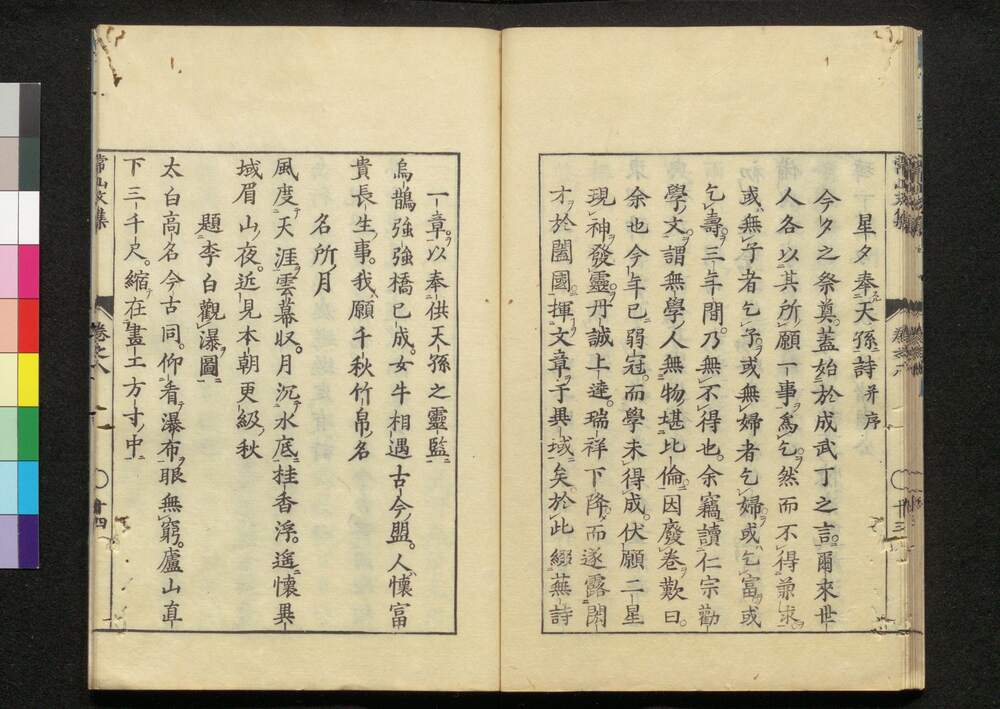 星夕奉天孫詩并序
今夕之祭奠蓋始於成武丁之言爾來世
人各以其所願一事爲乞然而不得兼求
或無子者乞子或無婦者乞婦或乞富或
乞壽三年間乃無不得也余竊讀仁宗勸
學文謂無學人無物堪比倫因廢卷歎曰
余也今年已弱冠而學未得成伏願二星
現神發靈丹誠上達瑞祥下降而遂露閎
才於闔國揮文章于異域矣於此綴蕪詩
常山文集
卷之八
十三
一章以奉供天孫之靈監
烏鵲強強橋已成女牛相遇古今盟人懷富
貴長生事我願千秋竹帛名
名所月
風度天涯雲幕収月沉水底桂香浮遙懷異
域眉山夜近見本朝更級秋
題李白觀瀑圖
太白高名今古同仰看瀑布眼無窮廬山直
下三千尺縮在畫工方寸中
常山文集
卷之八
十四